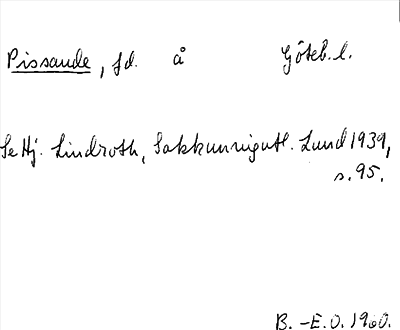 Pissande, fd. å Göteb. l.
Se Hj. Lindroth, Sakkunnigutl. Lund 1939,
s. 95.
B. -E. O. 1960.